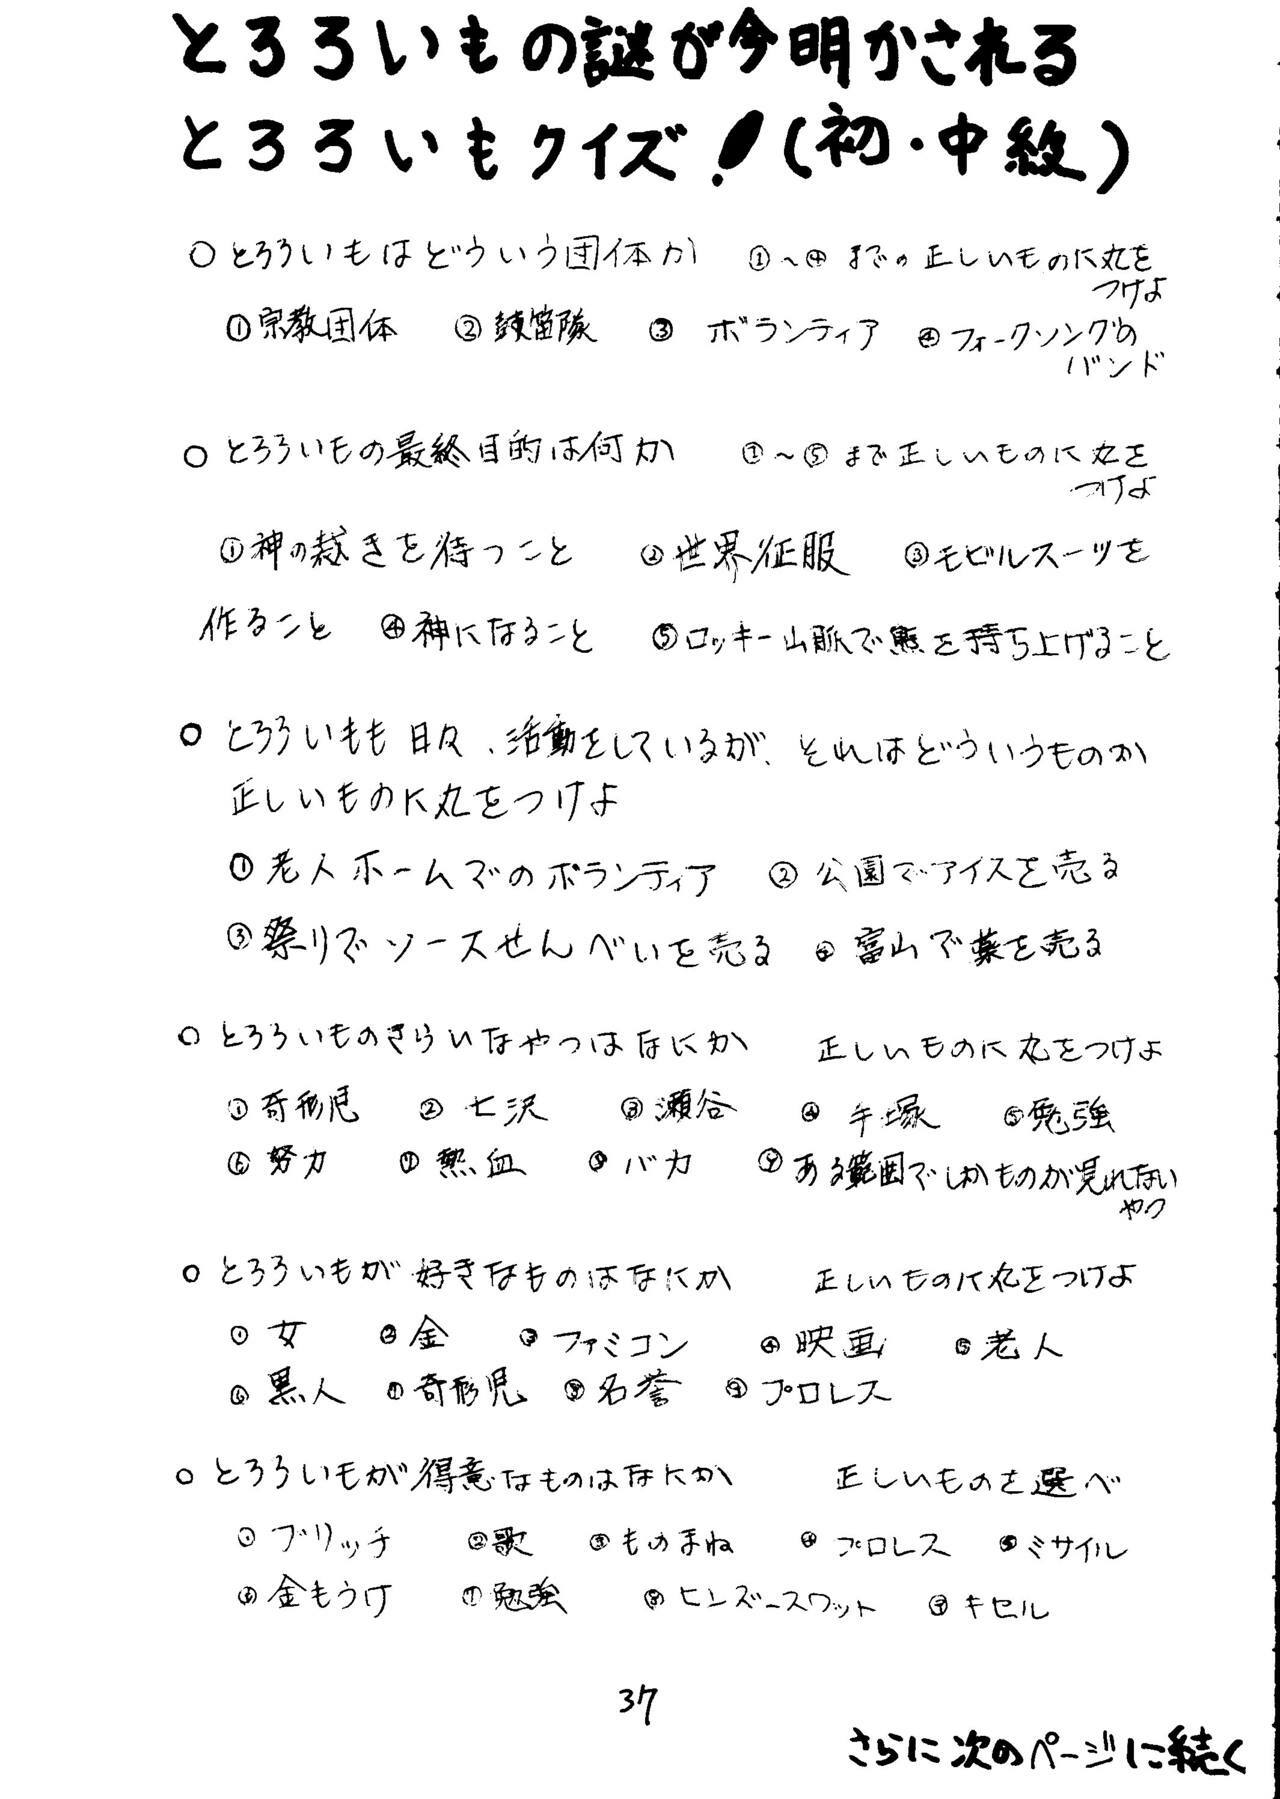 とろろいもの謎が今明かされる
とろろいもクイズ!(初・中級)
○とろろいもはどういう団体か ①～④までの正しいものに丸を
つけよ
①宗教団体 ②鼓笛隊 ③ボランティア ④フォークソングの
バンド
○とろろいもの最終目的は何か ①～⑤まで正しいものに丸を
つけよ
①神の裁きを待つこと ②世界征服 ③モビルスーツを
作ること ④神になること ⑤ロッキー山脈で熊を持ち上げること
○とろろいもも日々、活動をしているが、それはどういうものか
正しいものに丸をつけよ
①老人ホームでのボランティア ②公園でアイスを売る
③祭りでソースせんべいを売る ④富山で薬を売る
○とろろいものきらいなやつはなにか 正しいものに丸をつけよ
①奇形児 ②七沢 ③瀬谷 ④手塚 ⑤勉強
⑥努力 ⑦熱血 ⑧バカ ⑨ある範囲でしかものが見れない
やつ
○とろろいもが好きなものはなにか 正しいものに丸をつけよ
①女 ②金 ③ファミコン ④映画 ⑤老人
⑥黒人 ⑦奇形児 ⑧名誉 ⑨プロレス
○とろろいもが得意なものはなにか 正しいものを選べ
①ブリッチ ②歌 ③ものまね ④プロレス ⑤ミサイル
⑥金もうけ ⑦勉強 ⑧ヒンズースワット ⑨キセル
37
さらに次のページに続く